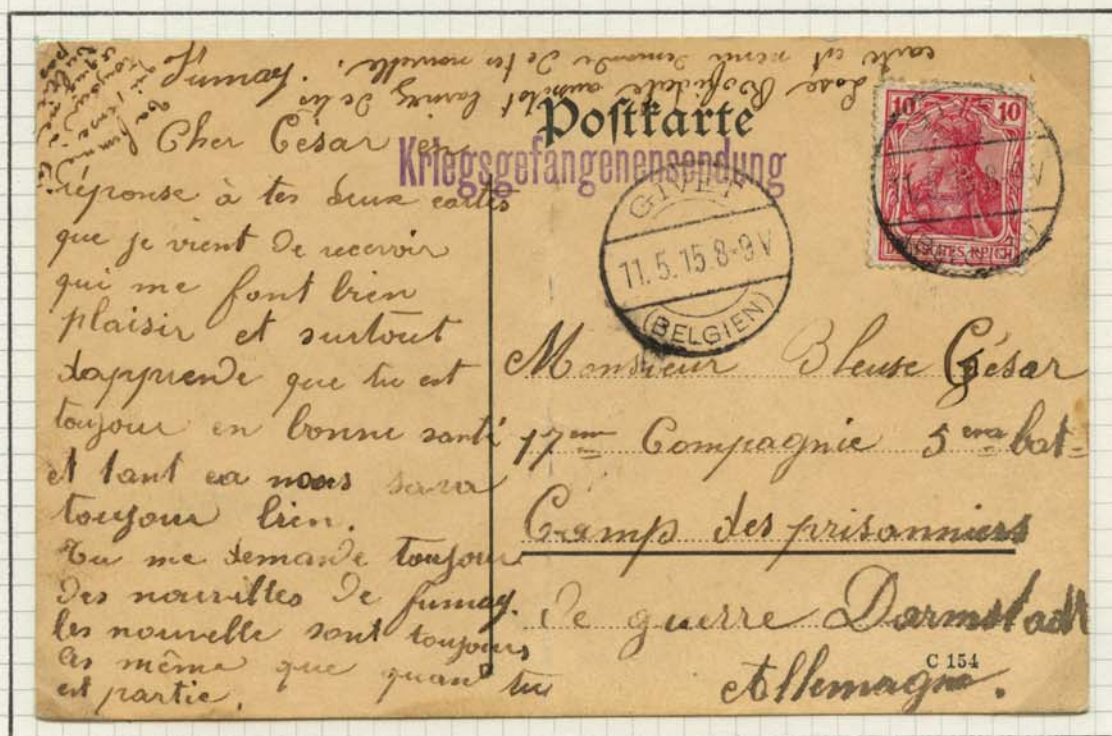 Fumay.
Cher César en
réponse à tes deux cartes
que je vient de recevoir
qui me font bien
plaisir et surtout
dapprende que tu est
toujour en bonne santé
et tant ca nous sera
toujour bien.
Tu me demande toujour
des nouvelles de fumay.
les nouvelle sont toujours
les même que quand tu
est partie.
carte est venu demande de tes nouvelle.
Postkarte
Kriegsgefangenensendung
GIVET
11.5.15.8-9V
(BELGIEN)
10 10
DEUTSCHES REICH
Monsieur Bleuse César
17eme Compagnie 5eme bat=
Camp des prisonniers
de guerre Darmstadt
Allemagne.
C 154